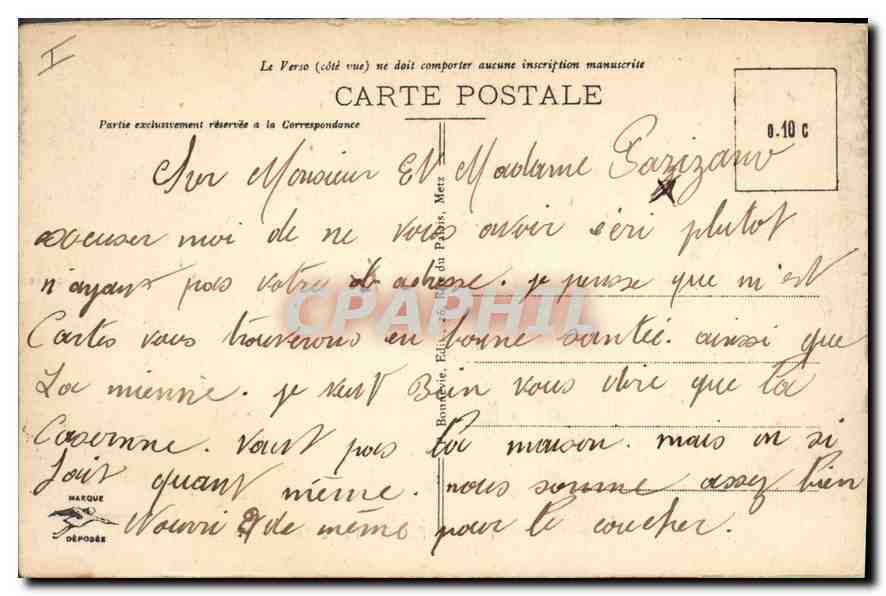 I
Le Verso (côté vue) ne doit comporter aucune inscription manuscrite
CARTE POSTALE
Partie exclusivement réservée a la Correspondance
0.10 c
Cher Monsieur Et Madame Parizano
excuser moi de ne vous avoir séri plutot
n'ayant pas votre adresse. je pensse que m'est
Cartes vous trouverons en bonne santée. ainsi que
La mienne. je veut Bien vous dire que la
Caserne. vaut pas la maison. mais on si
fait quant même. nous somme assez bien
Nourri de même pour le coucher.
Bonnevie, Edit., 26, Rue du Palais, Metz
MARQUE
DÉPOSÉE
CPAPHIL